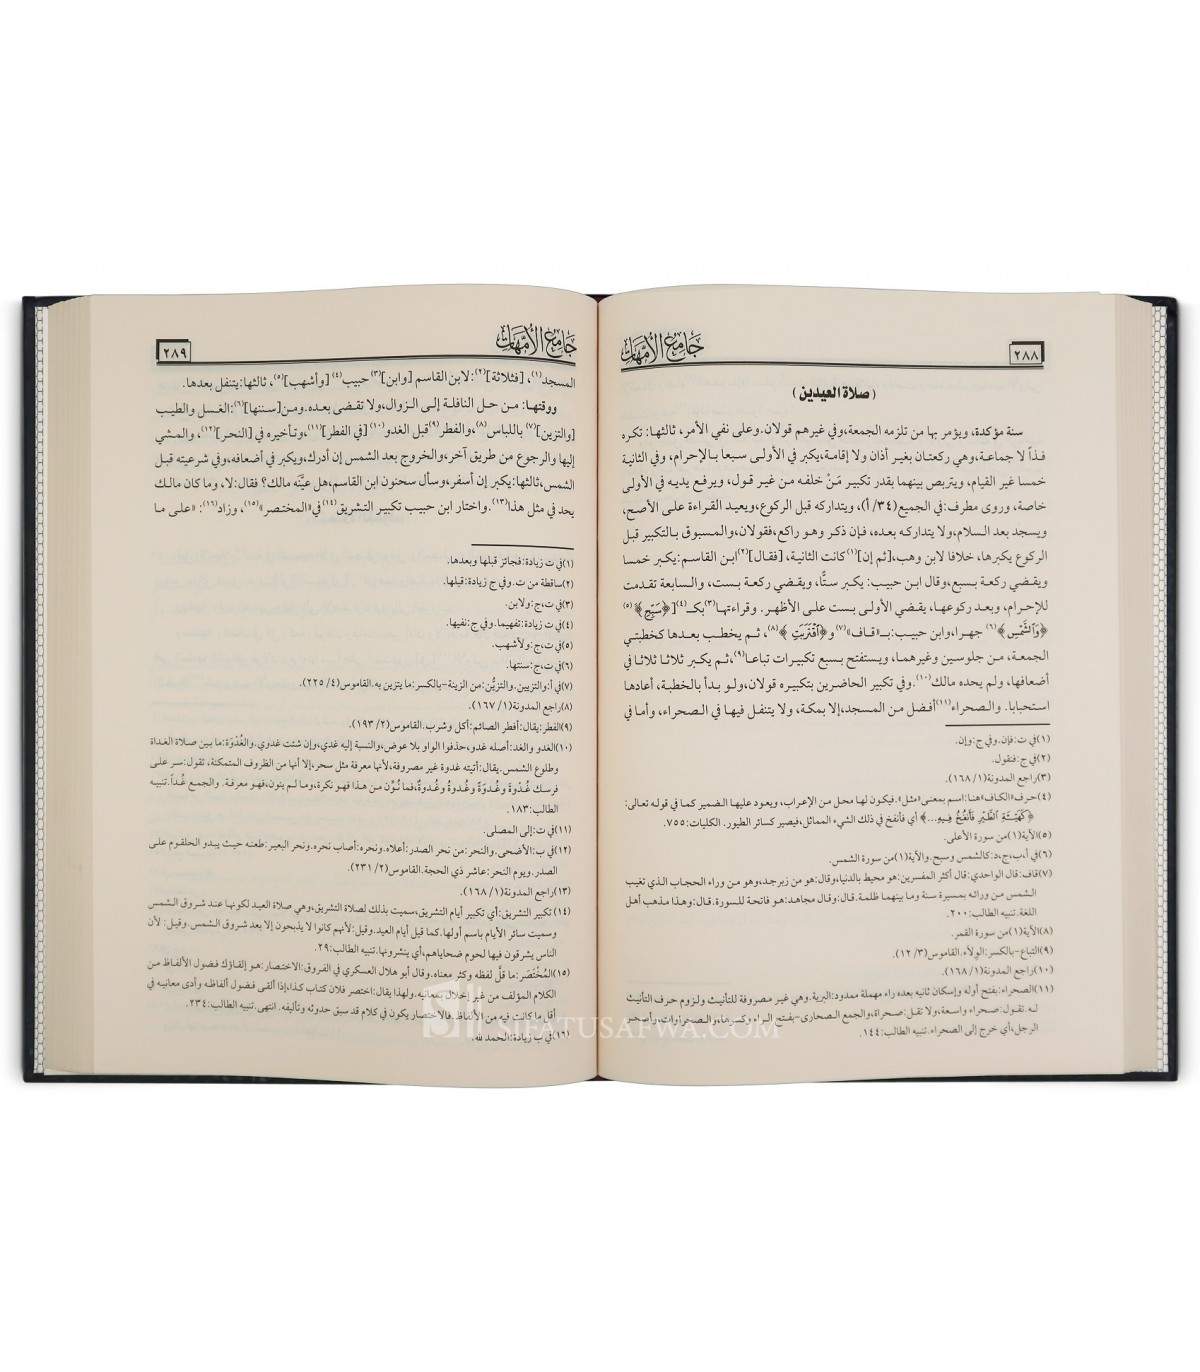 جامع الأمهات
٢٨٨
(صلاة العيدين)
سنة مؤكدة، ويؤمر بها من تلزمه الجمعة، وفي غيرهم قولان. وعلى نفي الأمر، ثالثها: تكره
فذاً لا جماعة، وهي ركعتان بغير أذان ولا إقامة، يكبر في الأولى سبعا بالإحرام، وفي الثانية
خمسا غير القيام، ويتربص بينهما بقدر تكبير مَنْ خلفه من غير قول، ويرفع يديه في الأولى
خاصة، وروى مطرف: في الجميع (٣٤/أ)، ويتداركه قبل الركوع، ويعيد القراءة على الأصح،
ويسجد بعد السلام، ولا يتداركه بعده، فإن ذكر وهو راكع، فقولان، والمسبوق بالتكبير قبل
الركوع يكبرها، خلافا لابن وهب، [ثم إن](١) كانت الثانية، [فقال](٢) ابن القاسم: يكبر خمسا
ويقضي ركعة بسبع، وقال ابن حبيب: يكبر ستًّا، ويقضي ركعة بست، والسابعة تقدمت
للإحرام، وبعد ركوعها، يقضي الأولى بست على الأظهر. وقراءتها(٣) بكـ(٤) [﴿سَبِّحِ﴾(٥)
﴿وَالشَّمْسِ﴾(٦) جهرا، وابن حبيب: بـ«قاف»(٧) و﴿اقْتَرَبَتِ﴾(٨)، ثم يخطب بعدها كخطبتي
الجمعة، من جلوسين وغيرهما، ويستفتح بسبع تكبيرات تباعا(٩)، ثم يكبر ثلاثا ثلاثا في
أضعافها، ولم يحده مالك(١٠). وفي تكبير الحاضرين بتكبيره قولان، ولو بدأ بالخطبة، أعادها
استحبابا. والصحراء(١١) أفضل من المسجد، إلا بمكة، ولا يتنفل فيها في الصحراء، وأما في
(١) في ت: فإن. وفي ج: وإن.
(٢) في ج: فنقول.
(٣) راجع المدونة (١/١٦٨).
(٤) حرف «الكاف» هنا: اسم بمعنى «مثل». فيكون لها محل من الإعراب، ويعود عليها الضمير كما في قوله تعالى:
﴿كَهَيْئَةِ الطَّيْرِ فَأَنفُخُ فِيهِ...﴾ أي فأنفخ في ذلك الشيء المماثل، فيصير كسائر الطيور. الكليات: ٧٥٥.
(٥) الآية (١) من سورة الأعلى.
(٦) في أ، ب، ج، د: كالشمس وسبح. والآية (١) من سورة الشمس.
(٧) قاف: قال الواحدي: قال أكثر المفسرين: هو محيط بالدنيا، وقال: هو من زبرجد، وهو من وراء الحجاب الذي تغيب
الشمس من ورائه بمسيرة سنة وما بينهما ظلمة. قال: وقال مجاهد: هو فاتحة للسورة. قال: وهذا مذهب أهل
اللغة. تنبيه الطالب: ٢٠٠.
(٨) الآية (١) من سورة القمر.
(٩) التباع-بالكسر: الولاء. القاموس (٣/١٢).
(١٠) راجع المدونة (١/١٦٨).
(١١) الصحراء: بفتح أوله وإسكان ثانيه بعده راء مهملة ممدود: البرية. وهي غير مصروفة للتأنيث ولزوم حرف التأنيث
له. تقول: صحراء واسعة، ولا تقل: صحراة، والجمع الصحارى-بفتح الراء وكسرها، والصحراوات، وأصحر
الرجل، أي خرج إلى الصحراء. تنبيه الطالب: ١٤٤.
جامع الأمهات
٢٨٩
المسجد(١)، [فثلاثة](٢): لابن القاسم [وابن](٣) حبيب(٤) [وأشهب](٥)، ثالثها: يتنفل بعدها.
ووقتها: من حل النافلة إلى الزوال، ولا تقضى بعده. ومن [سننها](٦): الغسل والطيب
[والتزين](٧) باللباس(٨)، والفطر(٩) قبل الغدو(١٠) [في الفطر](١١)، وتأخيره في [النحر](١٢)، والمشي
إليها والرجوع من طريق آخر، والخروج بعد الشمس إن أدرك، ويكبر في أضعافه، وفي شرعيته قبل
الشمس، ثالثها: يكبر إن أسفر، وسأل سحنون ابن القاسم، هل عيَّنه مالك؟ فقال: لا، وما كان مالك
يحد في مثل هذا(١٣). واختار ابن حبيب تكبير التشريق(١٤) في «المختصر»(١٥)، وزاد(١٦): «على ما
(١) في ت زيادة: فجائز قبلها وبعدها.
(٢) ساقطة من ت. وفي ج زيادة: قبلها.
(٣) في ت، ج: ولابن.
(٤) في ت زيادة: تفهيما. وفي ج: نفيها.
(٥) في ت، ج: ولأشهب.
(٦) في ت، ج: سنتها.
(٧) في أ: والتزيين. والتزيُّن: من الزينة-بالكسر: ما يتزين به. القاموس (٤/٢٢٥).
(٨) راجع المدونة (١/١٦٧).
(٩) الفطر: يقال: أفطر الصائم: أكل وشرب. القاموس (٢/١٩٣).
(١٠) الغدو والغد: أصله غدو، حذفوا الواو بلا عوض، والنسبة إليه غدي، وإن شئت غدوي. والغُدْوَة: ما بين صلاة الغداة
وطلوع الشمس. يقال: أتيته غدوة غير مصروفة، لأنها معرفة مثل سحر، إلا أنها من الظروف المتمكنة، تقول: سر على
فرسك غُدْوَةَ وغُدْوَةً وغُدوةُ وغُدوةٌ، فما نُوِّن من هذا فهو نكرة، وما لم ينون، فهو معرفة. والجمع غُداً. تنبيه
الطالب: ١٨٣.
(١١) في ت: إلى المصلى.
(١٢) في ب: الأضحى. والنحر: من نحر الصدر: أعلاه. ونحره: أصاب نحره. ونحر البعير: طعنه حيث يبدو الحلقوم على
الصدر. ويوم النحر: عاشر ذي الحجة. القاموس (٢/٢٣١).
(١٣) راجع المدونة (١/١٦٨).
(١٤) تكبير التشريق: أي تكبير أيام التشريق، سميت بذلك لصلاة التشريق، وهي صلاة العيد لكونها عند شروق الشمس
وسميت سائر الأيام باسم أولها. كما قيل أيام العيد. وقيل: لأنهم كانوا لا يذبحون إلا بعد شروق الشمس. وقيل: لأن
الناس يشرقون فيها لحوم ضحاياهم، أي ينشرونها. تنبيه الطالب: ٢٩.
(١٥) المُخْتَصَر: ما قلَّ لفظه وكثر معناه. وقال أبو هلال العسكري في الفروق: الاختصار: هو إلقاؤك فضول الألفاظ من
الكلام المؤلف من غير إخلال بمعانيه. ولهذا يقال: اختصر فلان كتاب كذا، إذا ألقى فضول ألفاظه وأدى معانيه في
أقل ما كانت فيه من الألفاظ، فالاختصار يكون في كلام قد سبق حدوثه وتأليفه. انتهى. تنبيه الطالب: ٢٣٤.
(١٦) في ب زيادة: الحمد لله.
SIFATUSAFWA.COM